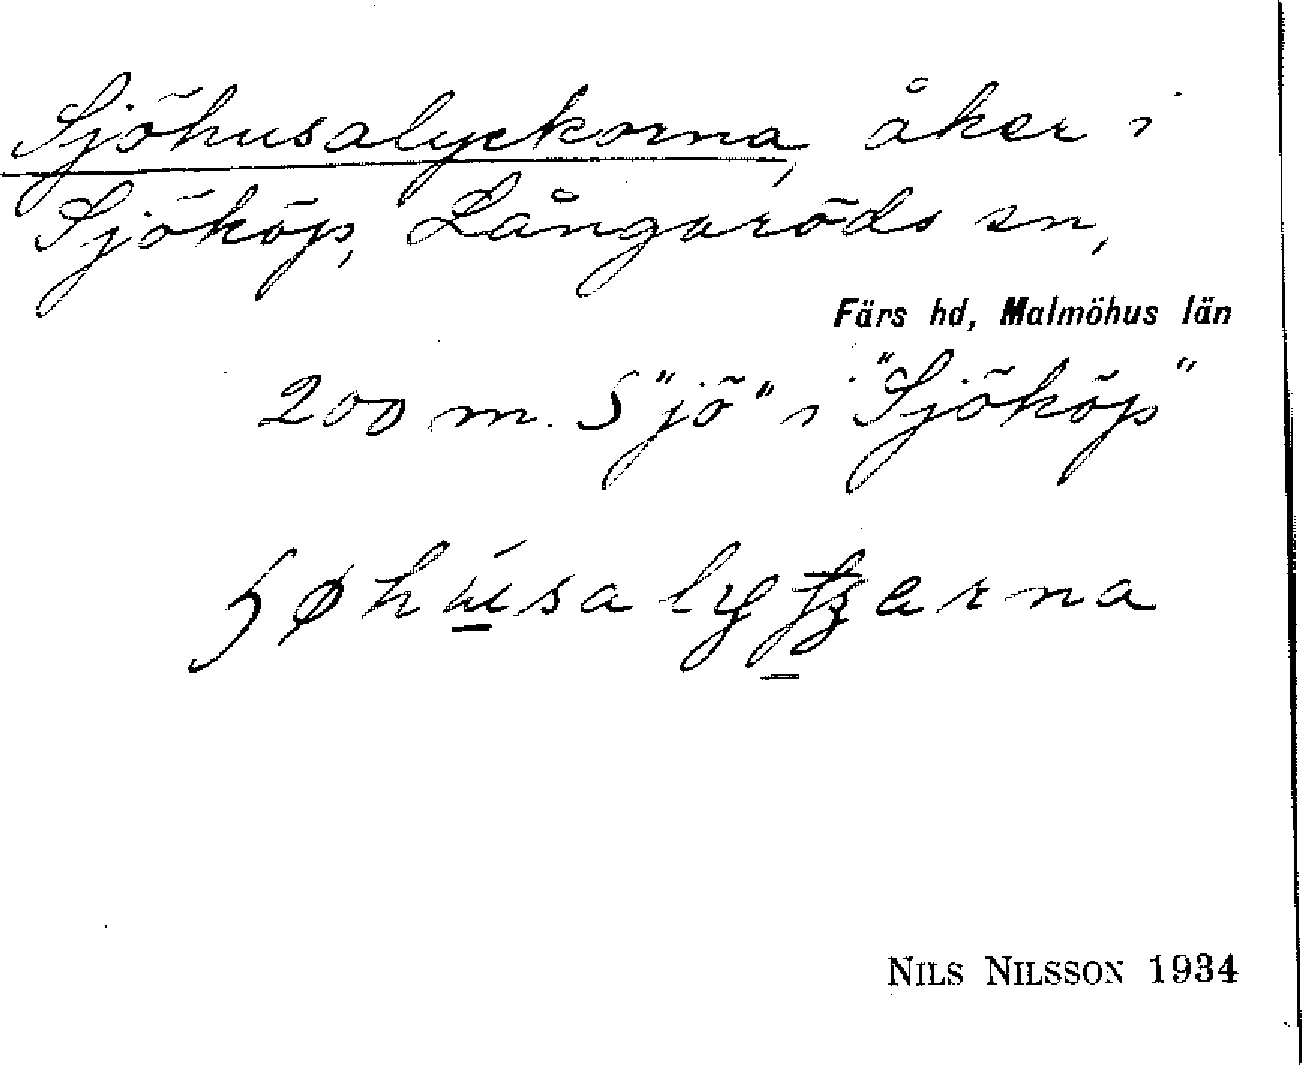 Sjöhusalyckorna, åker i
Sjököp, Långaröds sn,
Färs hd, Malmöhus län
200 m. S "jö" i "Sjököp"
NILS NILSSON 1934